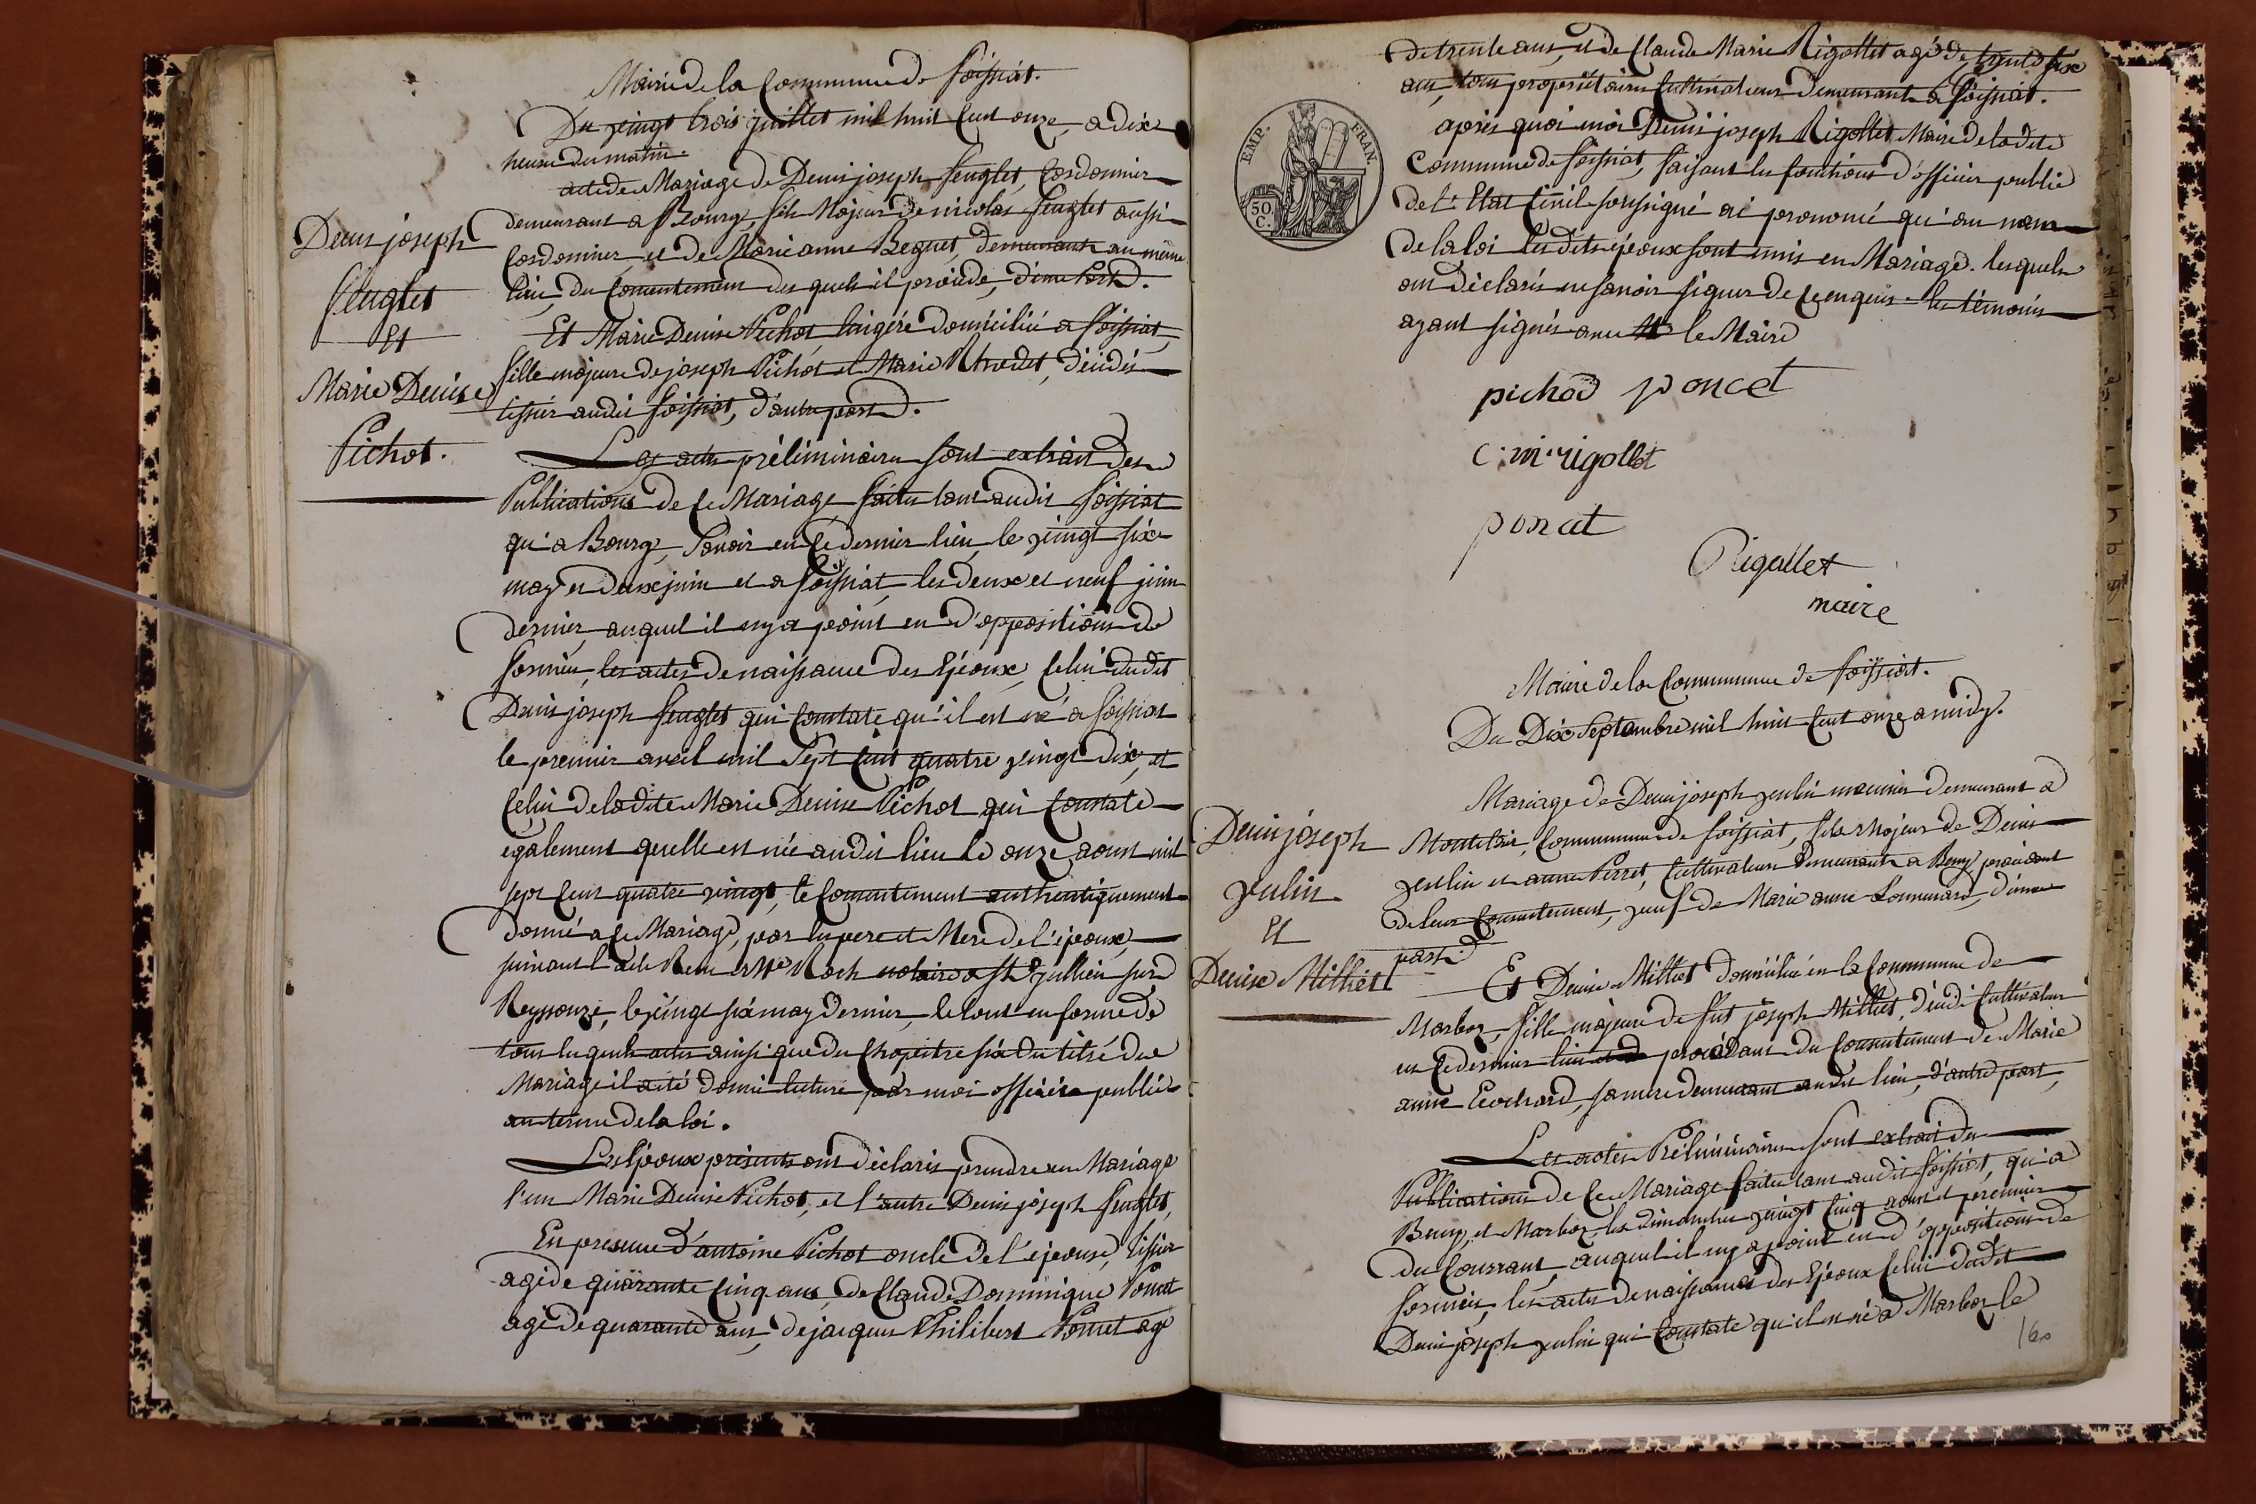 Mairie de la Commune de foissiat.
Du vingt trois juillet mil huit Cent onze, a dix
heure du matin.
acte de Mariage de Denis joseph feuglet, Cordonnier
demeurant a Bourg, fils Majeur de nicolas feuglet aussi
Cordonnier, et de Marie anne Beguet, demeurants au même
lieu, du Consentement des quels il procède, d'une Part.
Et Marie Denise Pichot lingére domiciliée a foissiat,
fille majeure de joseph Pichot et Marie decidés
tissier audit foissiat, d'autre part.
Denis joseph
feuglet
Et
Marie Denise
Pichot.
Les actes préliminaires sont extrait des
Publications de Ce Mariage faites tant audit foissiat
qu'a Bourg, Savoir en Ce dernier lieu, le vingt six
may et deux juin et a foissiat, les deux et neuf juin
dernier, auquel il n'y a point eu d'oppositions de
formées, les actes de naissance des Epoux, Celui dudit
Denis joseph feuglet qui Constate qu'il est né a foissiat
le premier avril mil Sept Cent quatre vingt dix, et
Celui de ladite Marie Denise Pichot qui Constate
également quelle est née audit lieu le onze aoust mil
sept Cent quatre vingt, le Consentement authentiquement
donné a Ce Mariage, par les pere et Mere de l'epoux,
suivant l'acte Reçu Mre Roch notaire a St jullien sur
Reyssouze, le vingt six may dernier, le tout en forme de
tous lesquels actes ainsi que du Chapitre six du titre du
Mariage il a été donné lecture par moi officier public
au terme de la loi.
Les Epoux présents ont déclarés prendre en Mariage
l'un Marie Denise Pichot, et l'autre Denis joseph feuglet,
En presence d'antoine Pichot oncle de l'epouse, tissier
agé de quarante Cinq ans, de Claude Dominique Poncet
agé de quarante ans, de jacques Philibert Poncet agé
EMP. FRAN.
50.
C.
de trente ans, et de Claude Marie Rigollet agé de trente six
ans, tous propriétaires Cultivateurs demeurants a foissiat.
après quoi moi Denis joseph Rigollet Maire de ladite
Commune de foissiat, faisant les fonctions d'officier public
de l'Etat Civil soussigné ai prononcé qu'au nom
de la loi les dits epoux sont unis en Mariage. lesquels
ont déclarés ne savoir signer de Ce enquis les témoins
ayant signés avec le Maire
pichod poncet
c. m. rigollet
poncet
Rigollet
maire
Mairie de la Commune de foissiat.
Du Dix Septembre mil huit Cent onze a midy.
Mariage de Denis joseph velin meunier demeurant a
Commune de foissiat, fils Majeur de Denis
velin et anne Perret, Cultivateurs demeurants a Beny procédant
de leur Consentement, veuf de Marie anne d'une
part.
Denis joseph
velin
Et
Denise Milliet
Et Denise Milliet domiciliée en la Commune de
Marboz, fille majeure de fut joseph Milliet, décidé Cultivateur
en Ce dernier lieu procédant du Consentement de Marie
anne Ecochard, sa mere demeurant audit lieu, d'autre part,
Les actes Préliminaires sont extrait des
Publications de Ce Mariage faites tant audit foissiat, qu'a
Beny, et Marboz, les dimanches vingt Cinq aoust et premier
du Courrant, auquel il n'y a point eu d'oppositions de
formées, les actes de naissance des Epoux Celui dudit
Denis joseph velin qui Constate qu'il est né a Marboz le
160